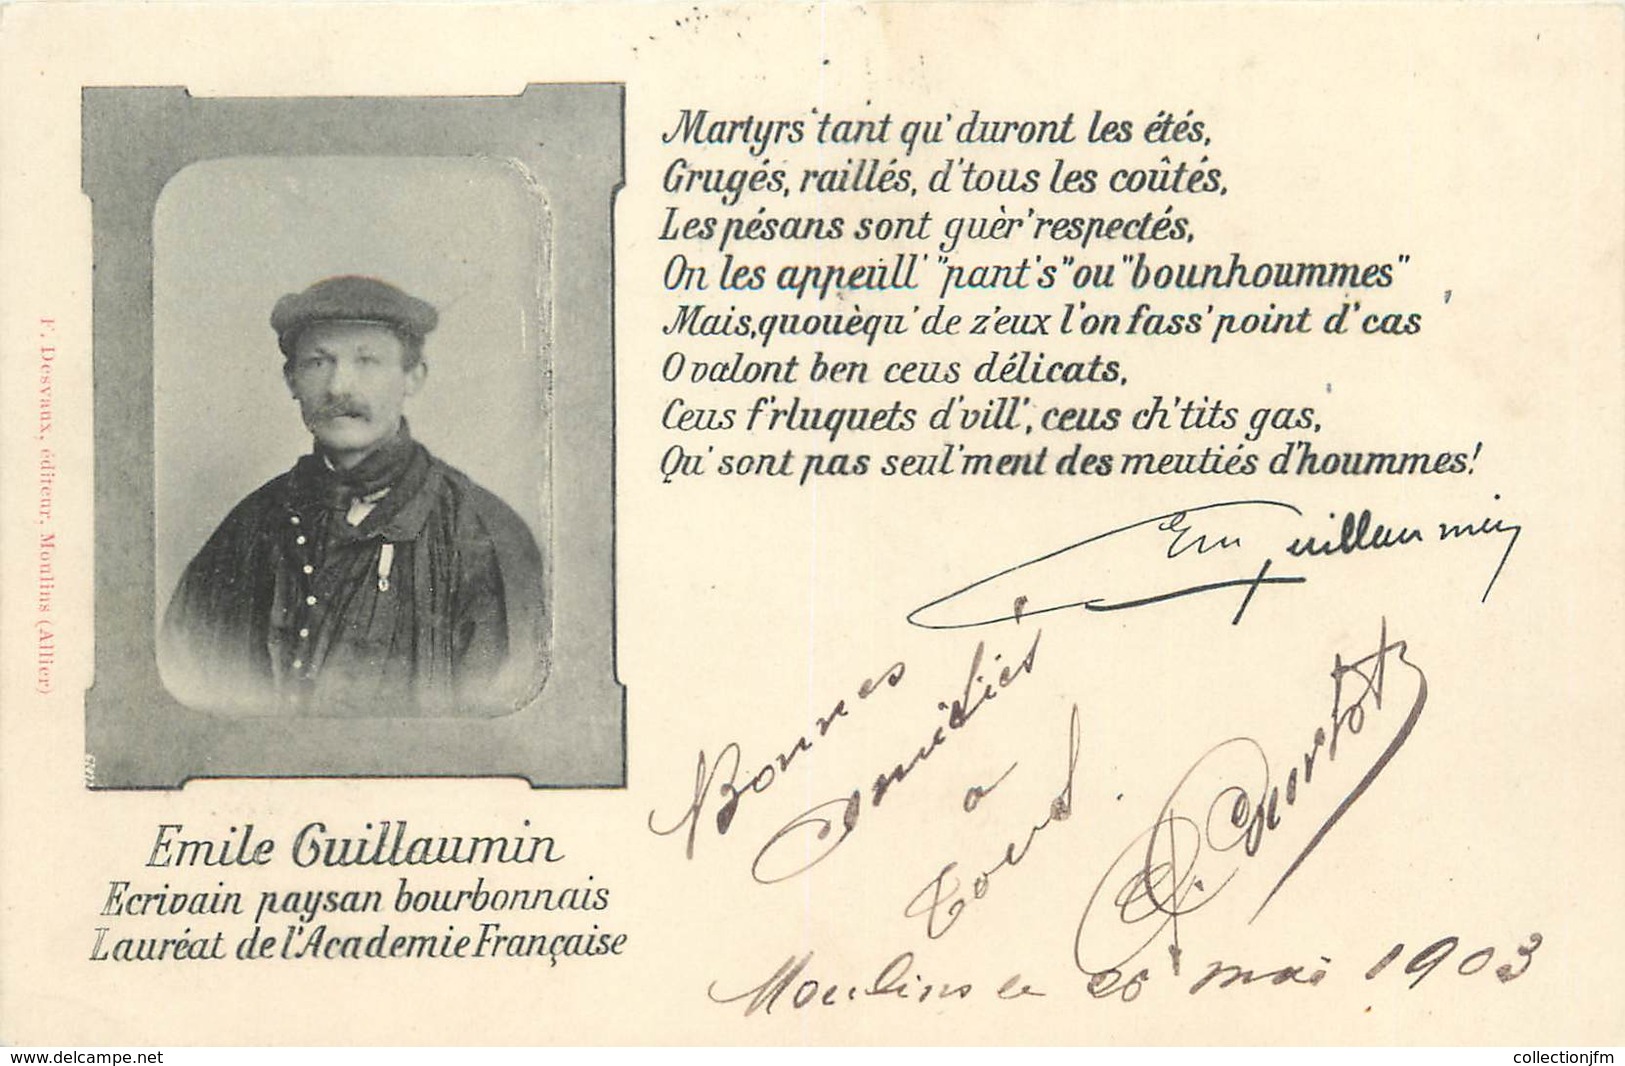 Martyrs tant qu' duront les étés,
Grugés, raillés, d'tous les coûtés,
Les pésans sont guèr' respectés,
On les appeûll' "pant's" ou "bounhoummes"
Mais, quouèqu' de z'eux l'on fass' point d' cas
O valont ben ceus délicats,
Ceus f'rluquets d'vill', ceus ch'tits gas,
Qu' sont pas seul'ment des meutiés d'hoummes!
Em Guillaumin
Emile Guillaumin
Ecrivain paysan bourbonnais
Lauréat de l'Académie Française
F. Desvaux, éditeur, Moulins (Allier)
Bonnes
amitiés
a
tous
Moulins le 26 mai 1903
www.delcampe.net
collectionjfm